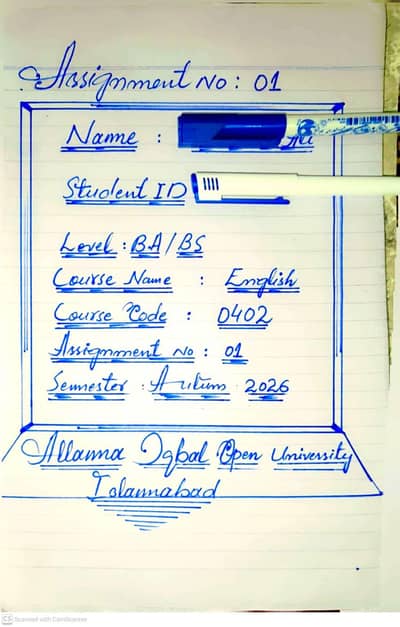 Assignment No: 01
Name : Ali
Student ID
Level : BA/BS
Course Name : English
Course Code : 0402
Assignment No : 01
Semester : Autum 2026
Allama Iqbal Open University
Islamabad
CS Scanned with CamScanner